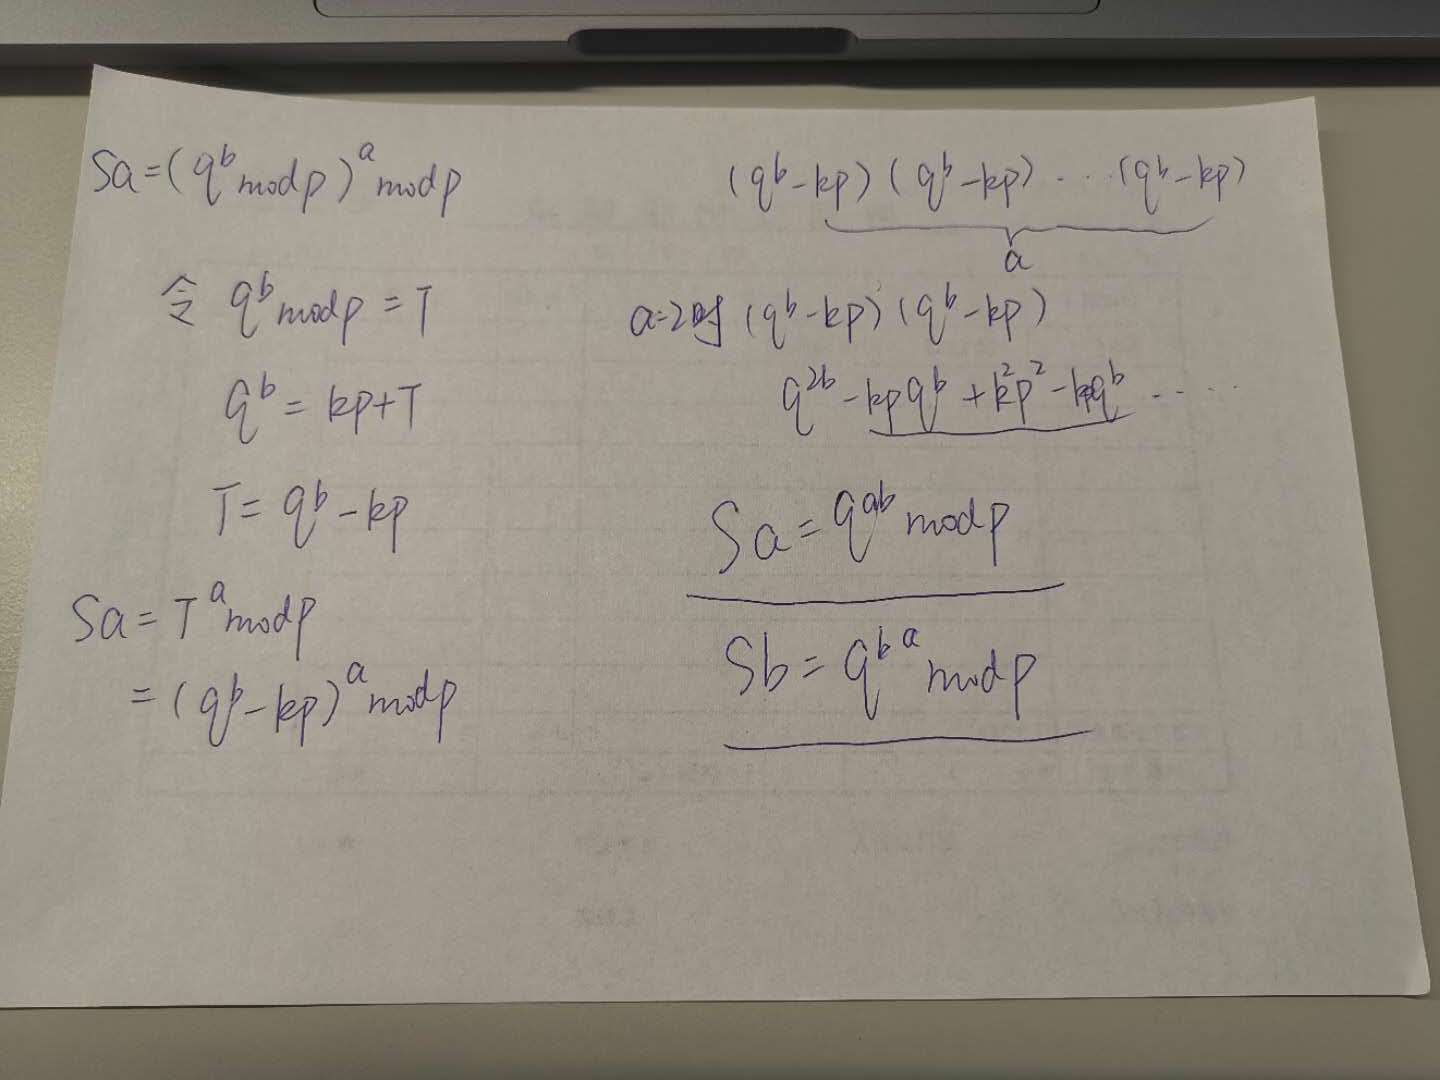 Sa=(q^b mod p)^a mod p
令 q^b mod p = T
q^b = kp+T
T= q^b - kp
Sa= T^a mod p
= (q^b - kp)^a mod p
(q^b - kp) (q^b - kp) ... (q^b - kp)
a
a=2时 (q^b - kp) (q^b - kp)
q^2b - kpq^b + k^2p^2 - kpq^b ....
Sa = q^ab mod p
Sb = q^ba mod p